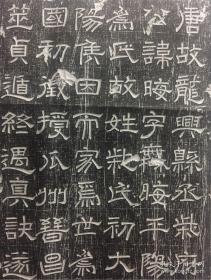 唐故龍興縣丞柴
公諱字晦平陽
為氏故姓柴氏初大
陽侯因而家焉世為
國初徵授瓜州晉昌
筮貞遁終遇真訣遂